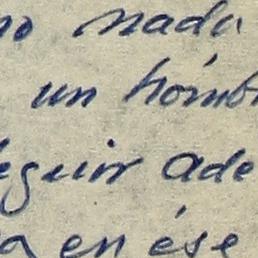 no nada
un homb
eguir ade
a en ése